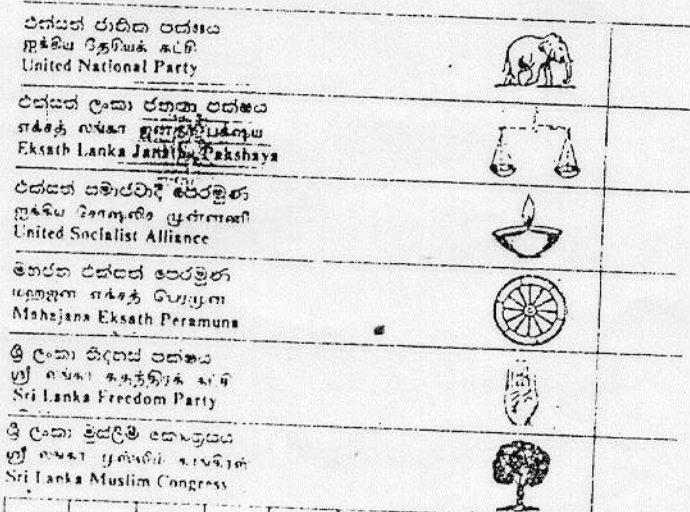 එක්සත් ජාතික පක්ෂය
ஐக்கிய தேசியக் கட்சி
United National Party
එක්සත් ලංකා ජනතා පක්ෂය
எக்சத் லங்கா ஜனதா பக்ஷய
Eksath Lanka Janatha Pakshaya
එක්සත් සමාජවාදී පෙරමුණ
ஐக்கிய சோஷலிச முன்னணி
United Socialist Alliance
මහජන එක්සත් පෙරමුණ
மஹஜன எக்சத் பெரமுன
Mahajana Eksath Peramuna
ශ්‍රී ලංකා නිදහස් පක්ෂය
ஸ்ரீ லங்கா சுதந்திரக் கட்சி
Sri Lanka Freedom Party
ශ්‍රී ලංකා මුස්ලිම් කොංග්‍රසය
ஸ்ரீ லங்கா முஸ்லிம் காங்கிரஸ்
Sri Lanka Muslim Congress